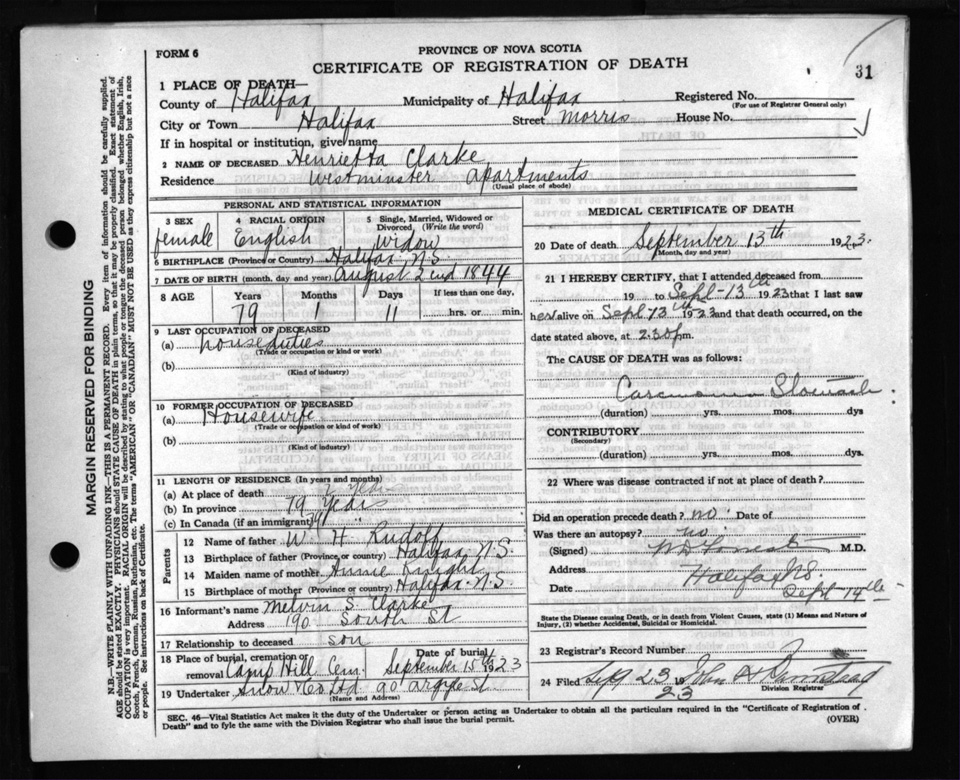 PROVINCE OF NOVA SCOTIA
FORM 6
CERTIFICATE OF REGISTRATION OF DEATH
31
1 PLACE OF DEATH—
County of Halifax Municipality of Halifax Registered No.
(For use of Registrar General only)
City or Town Halifax Street Morris House No.
If in hospital or institution, give name
2 NAME OF DECEASED Henrietta Clarke
Residence Westminster apartments
(Usual place of abode)
PERSONAL AND STATISTICAL INFORMATION
3 SEX 4 RACIAL ORIGIN 5 Single, Married, Widowed or Divorced (Write the word)
female English Widow
6 BIRTHPLACE (Province or Country) Halifax N.S.
7 DATE OF BIRTH (month, day and year) August 2nd 1844
8 AGE Years Months Days If less than one day,
79 1 11 hrs. or min.
9 LAST OCCUPATION OF DECEASED
(a) house duties
(Trade or occupation or kind or work)
(b)
(Kind of industry)
10 FORMER OCCUPATION OF DECEASED
(a) Housewife
(Trade or occupation or kind of work)
(b)
(Kind of industry)
11 LENGTH OF RESIDENCE (In years and months)
(a) At place of death
(b) In province 79 years
(c) In Canada (if an immigrant)
Parents
12 Name of father W. H. Rudolf
13 Birthplace of father (Province or Country) Halifax, N.S.
14 Maiden name of mother Annie Knight
15 Birthplace of mother (Province or Country) Halifax. N.S.
16 Informant's name Melvin S. Clarke
Address 190 South St
17 Relationship to deceased son
18 Place of burial, cremation or removal Camp Hill Cem. Date of burial September 15th 1923
19 Undertaker Snow & Co Ltd 90 Argyle St
(Name and Address)
MEDICAL CERTIFICATE OF DEATH
20 Date of death September 13th 1923.
(Month, day and year)
21 I HEREBY CERTIFY, that I attended deceased from
19 to Sept-13th 1923 that I last saw
her alive on Sept 13th 1923 and that death occurred, on the
date stated above, at 2.30 p.m.
The CAUSE OF DEATH was as follows:
Carcinoma Stomach
(duration) yrs. mos. dys
CONTRIBUTORY
(Secondary)
(duration) yrs. mos. dys.
22 Where was disease contracted if not at place of death?
Did an operation precede death? no Date of
Was there an autopsy? no
(Signed) M.D.
Address Halifax N.S.
Date Sept 14th
State the Disease causing Death, or in death from Violent Causes, state (1) Means and Nature of
Injury, (2) whether Accidental, Suicidal or Homicidal.
23 Registrar's Record Number
24 Filed Sept 23 19 23 John
Division Registrar
SEC. 46—Vital Statistics Act makes it the duty of the Undertaker or person acting as Undertaker to obtain all the particulars required in the "Certificate of Registration of
Death" and to fyle the same with the Division Registrar who shall issue the burial permit.
(OVER)
MARGIN RESERVED FOR BINDING
N.B.—WRITE PLAINLY WITH UNFADING INK—THIS IS A PERMANENT RECORD. Every item of information should be carefully supplied.
AGE should be stated EXACTLY. PHYSICIANS should STATE CAUSE OF DEATH in plain terms, so that it may be properly classified. Exact statement of
OCCUPATION is very important. RACIAL ORIGIN will be described by stating to what people or tongue the deceased person belonged whether English, Irish,
Scotch, French, German, Russian, Ruthenian, etc. The terms "AMERICAN" OR "CANADIAN" MUST NOT BE USED as they express citizenship but not a race
or people. See instructions on back of Certificate.